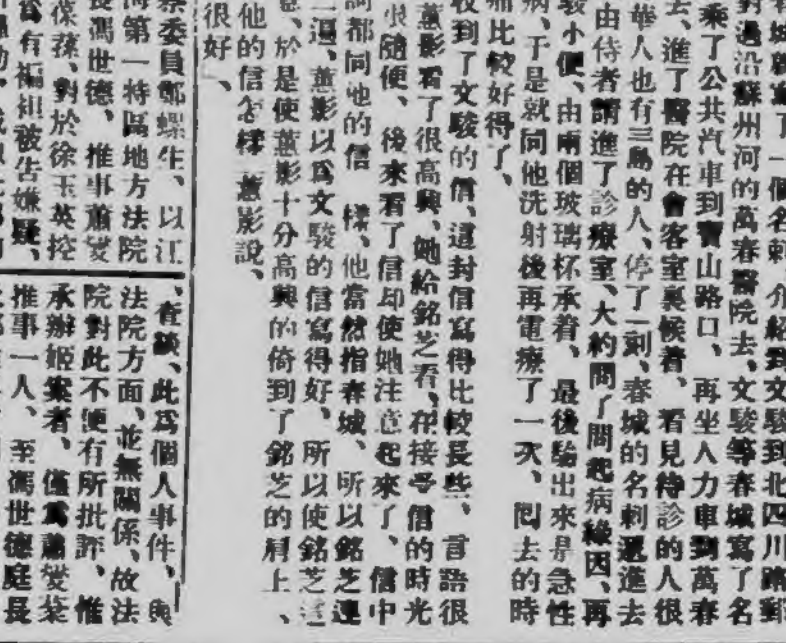 春城舊寫了一個名刺、介紹到文駿到北四川路郵
對過沿蘇州河的萬春醫院去、文駿等春城寫了名
乘了公共汽車到寶山路口、再坐人力車到萬春
去、進了醫院在會客室裏候着、看見待診的人很
華人也有三島的人、停了一刻、春城的名刺遞進去
由侍者請進了診療室、大約問了問起病緣因、再
驗小便、由兩個玻璃杯承着、最後驗出來是急性
病、于是就同他洗射後再電療了一次、囘去的時
痛比較好得了、
收到了文駿的信、這封信寫得比較長些、言語很
蕙影看了很高興、她給銘芝看、在接吾信的時光
很隨便、後來看了信却使她注意起來了、信中
詞都同她的信 樣、他當然指春城、所以銘芝連
一遍、蕙影以爲文駿的信寫得好、所以使銘芝這
意、於是使蕙影十分高興的倚到了銘芝的肩上、
他的信怎樣 蕙影說、
很好」、
察委員鄭螺生、以江
海第一特區地方法院
長馮世德、推事蕭燮
葆蓀、對於徐玉英控
爲有褊袒被告嫌疑、
、查該、此爲個人事件、與
法院方面、並無關係、故法
院對此不便有所批評、惟
承辦姬案者、僅爲蕭燮棻
推事一人、至馮世德庭長